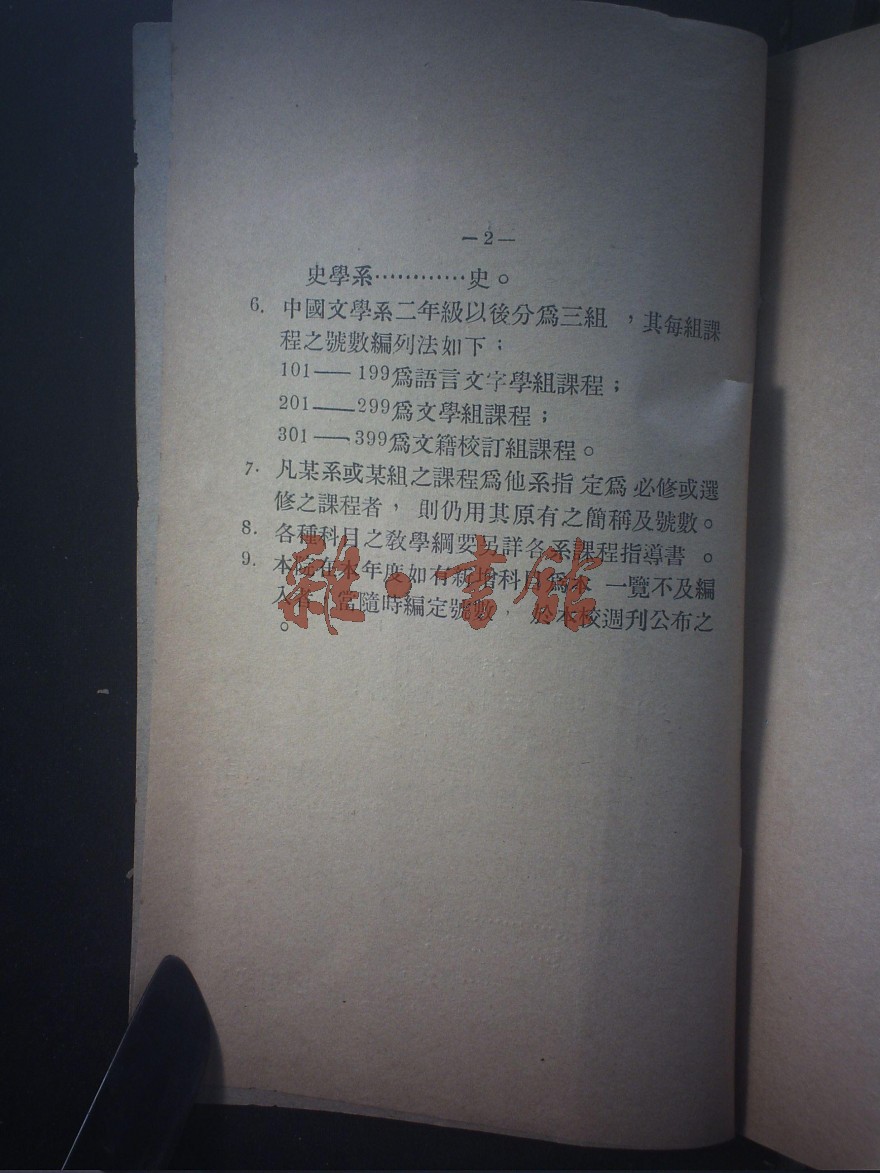 —2—
史學系…………史。
6. 中國文學系二年級以後分爲三組，其每組課
程之號數編列法如下；
101——199爲語言文字學組課程；
201——299爲文學組課程；
301——399爲文籍校訂組課程。
7. 凡某系或某組之課程爲他系指定爲必修或選
修之課程者，則仍用其原有之簡稱及號數。
8. 各種科目之敎學綱要另詳各系課程指導書。
9. 本院在本年度如有新增科目爲本一覽不及編
入者，當隨時編定號數，於本校週刊公布之
。
雜·書館